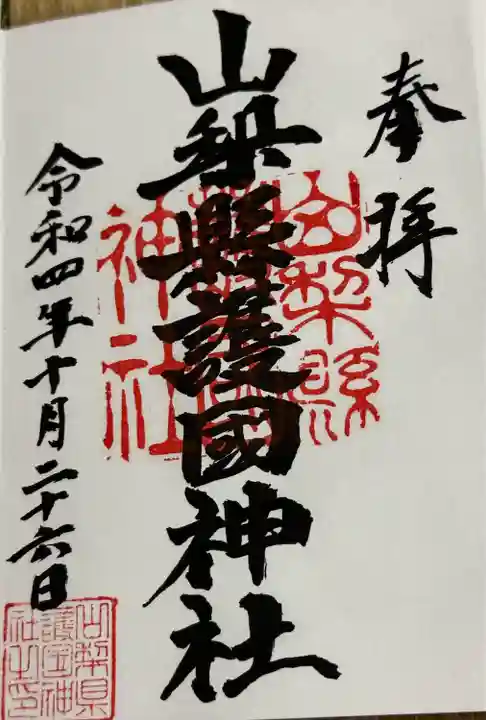 奉拝
山梨縣護國神社
山梨縣護國神社
令和四年十月二十六日
山梨県護国神社之印